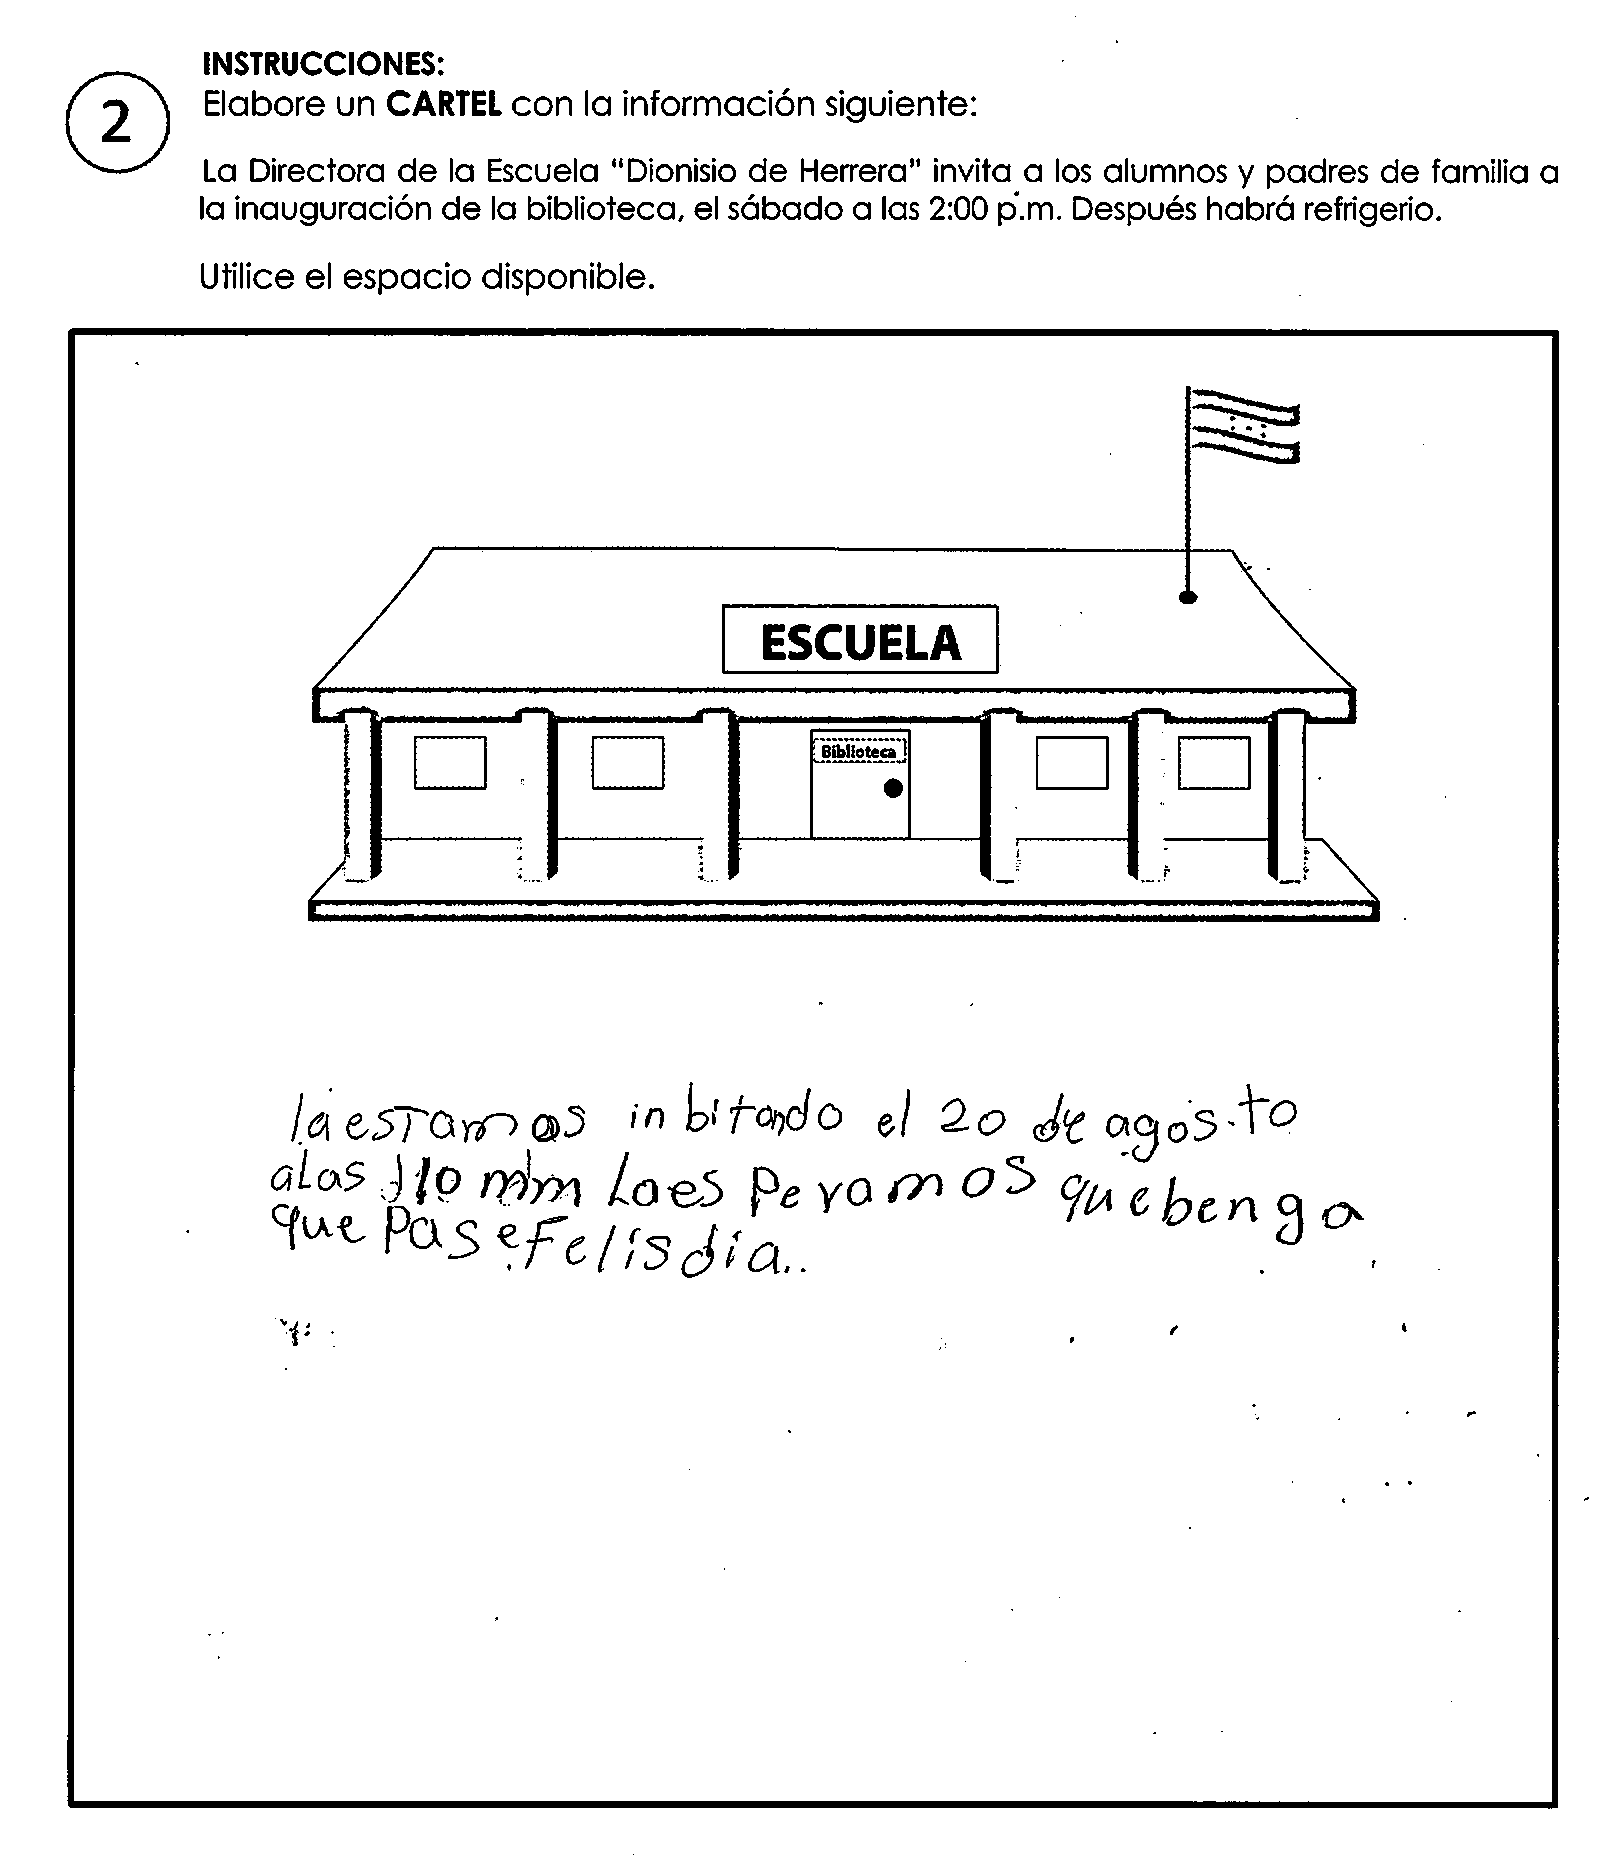 INSTRUCCIONES:
2
Elabore un CARTEL con la información siguiente:
La Directora de la Escuela "Dionisio de Herrera" invita a los alumnos y padres de familia a
la inauguración de la biblioteca, el sábado a las 2:00 p.m. Después habrá refrigerio.
Utilice el espacio disponible.
ESCUELA
Biblioteca
la estamos in bitando el 20 de agosto
a Las 110 mm La es peramos que benga
que Pase Felis dia..